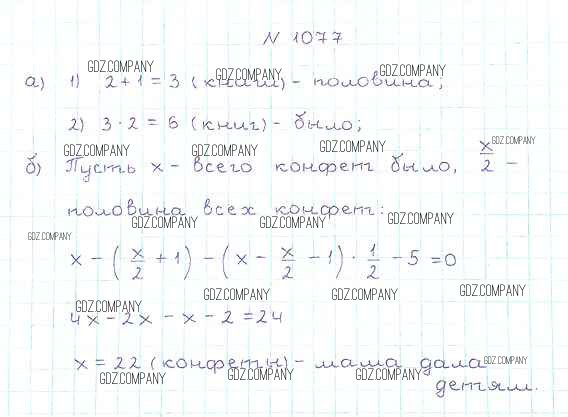 N 1077
GDZ.COMPANY GDZ.COMPANY GDZ.COMPANY
а) 1) 2+1=3 (книги) - половина;
2) 3·2=6 (книг) - было;
GDZ.COMPANY GDZ.COMPANY GDZ.COMPANY GDZ.COMPANY
б) Пусть x - всего конфет было, x/2 -
половина всех конфет:
GDZ.COMPANY GDZ.COMPANY GDZ.COMPANY
GDZ.COMPANY
x - (x/2 + 1) - (x - x/2 - 1) · 1/2 - 5 = 0
GDZ.COMPANY GDZ.COMPANY GDZ.COMPANY GDZ.COMPANY
4x - 2x - x - 2 = 24
x = 22 (конфеты) - мама дала
GDZ.COMPANY GDZ.COMPANY GDZ.COMPANY GDZ.COMPANY
детям.